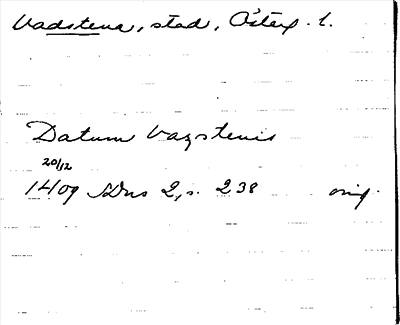 Vadstena, stad, Österg. l.
Datum Vazstenis
20/12
1409 SDns 2, s. 238 orig.